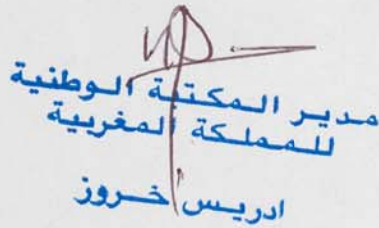 مدير المكتبة الوطنية
للمملكة المغربية
ادريس خروز